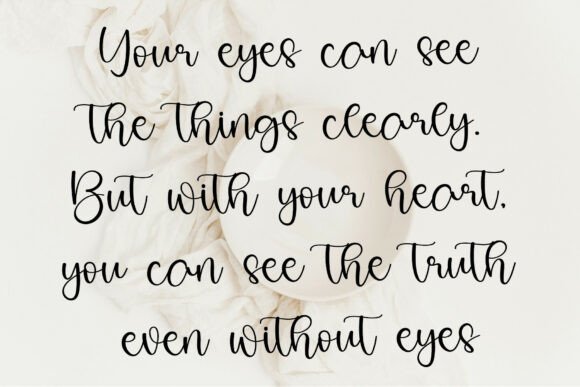 Your eyes can see
the things clearly.
But with your heart,
you can see the truth
even without eyes